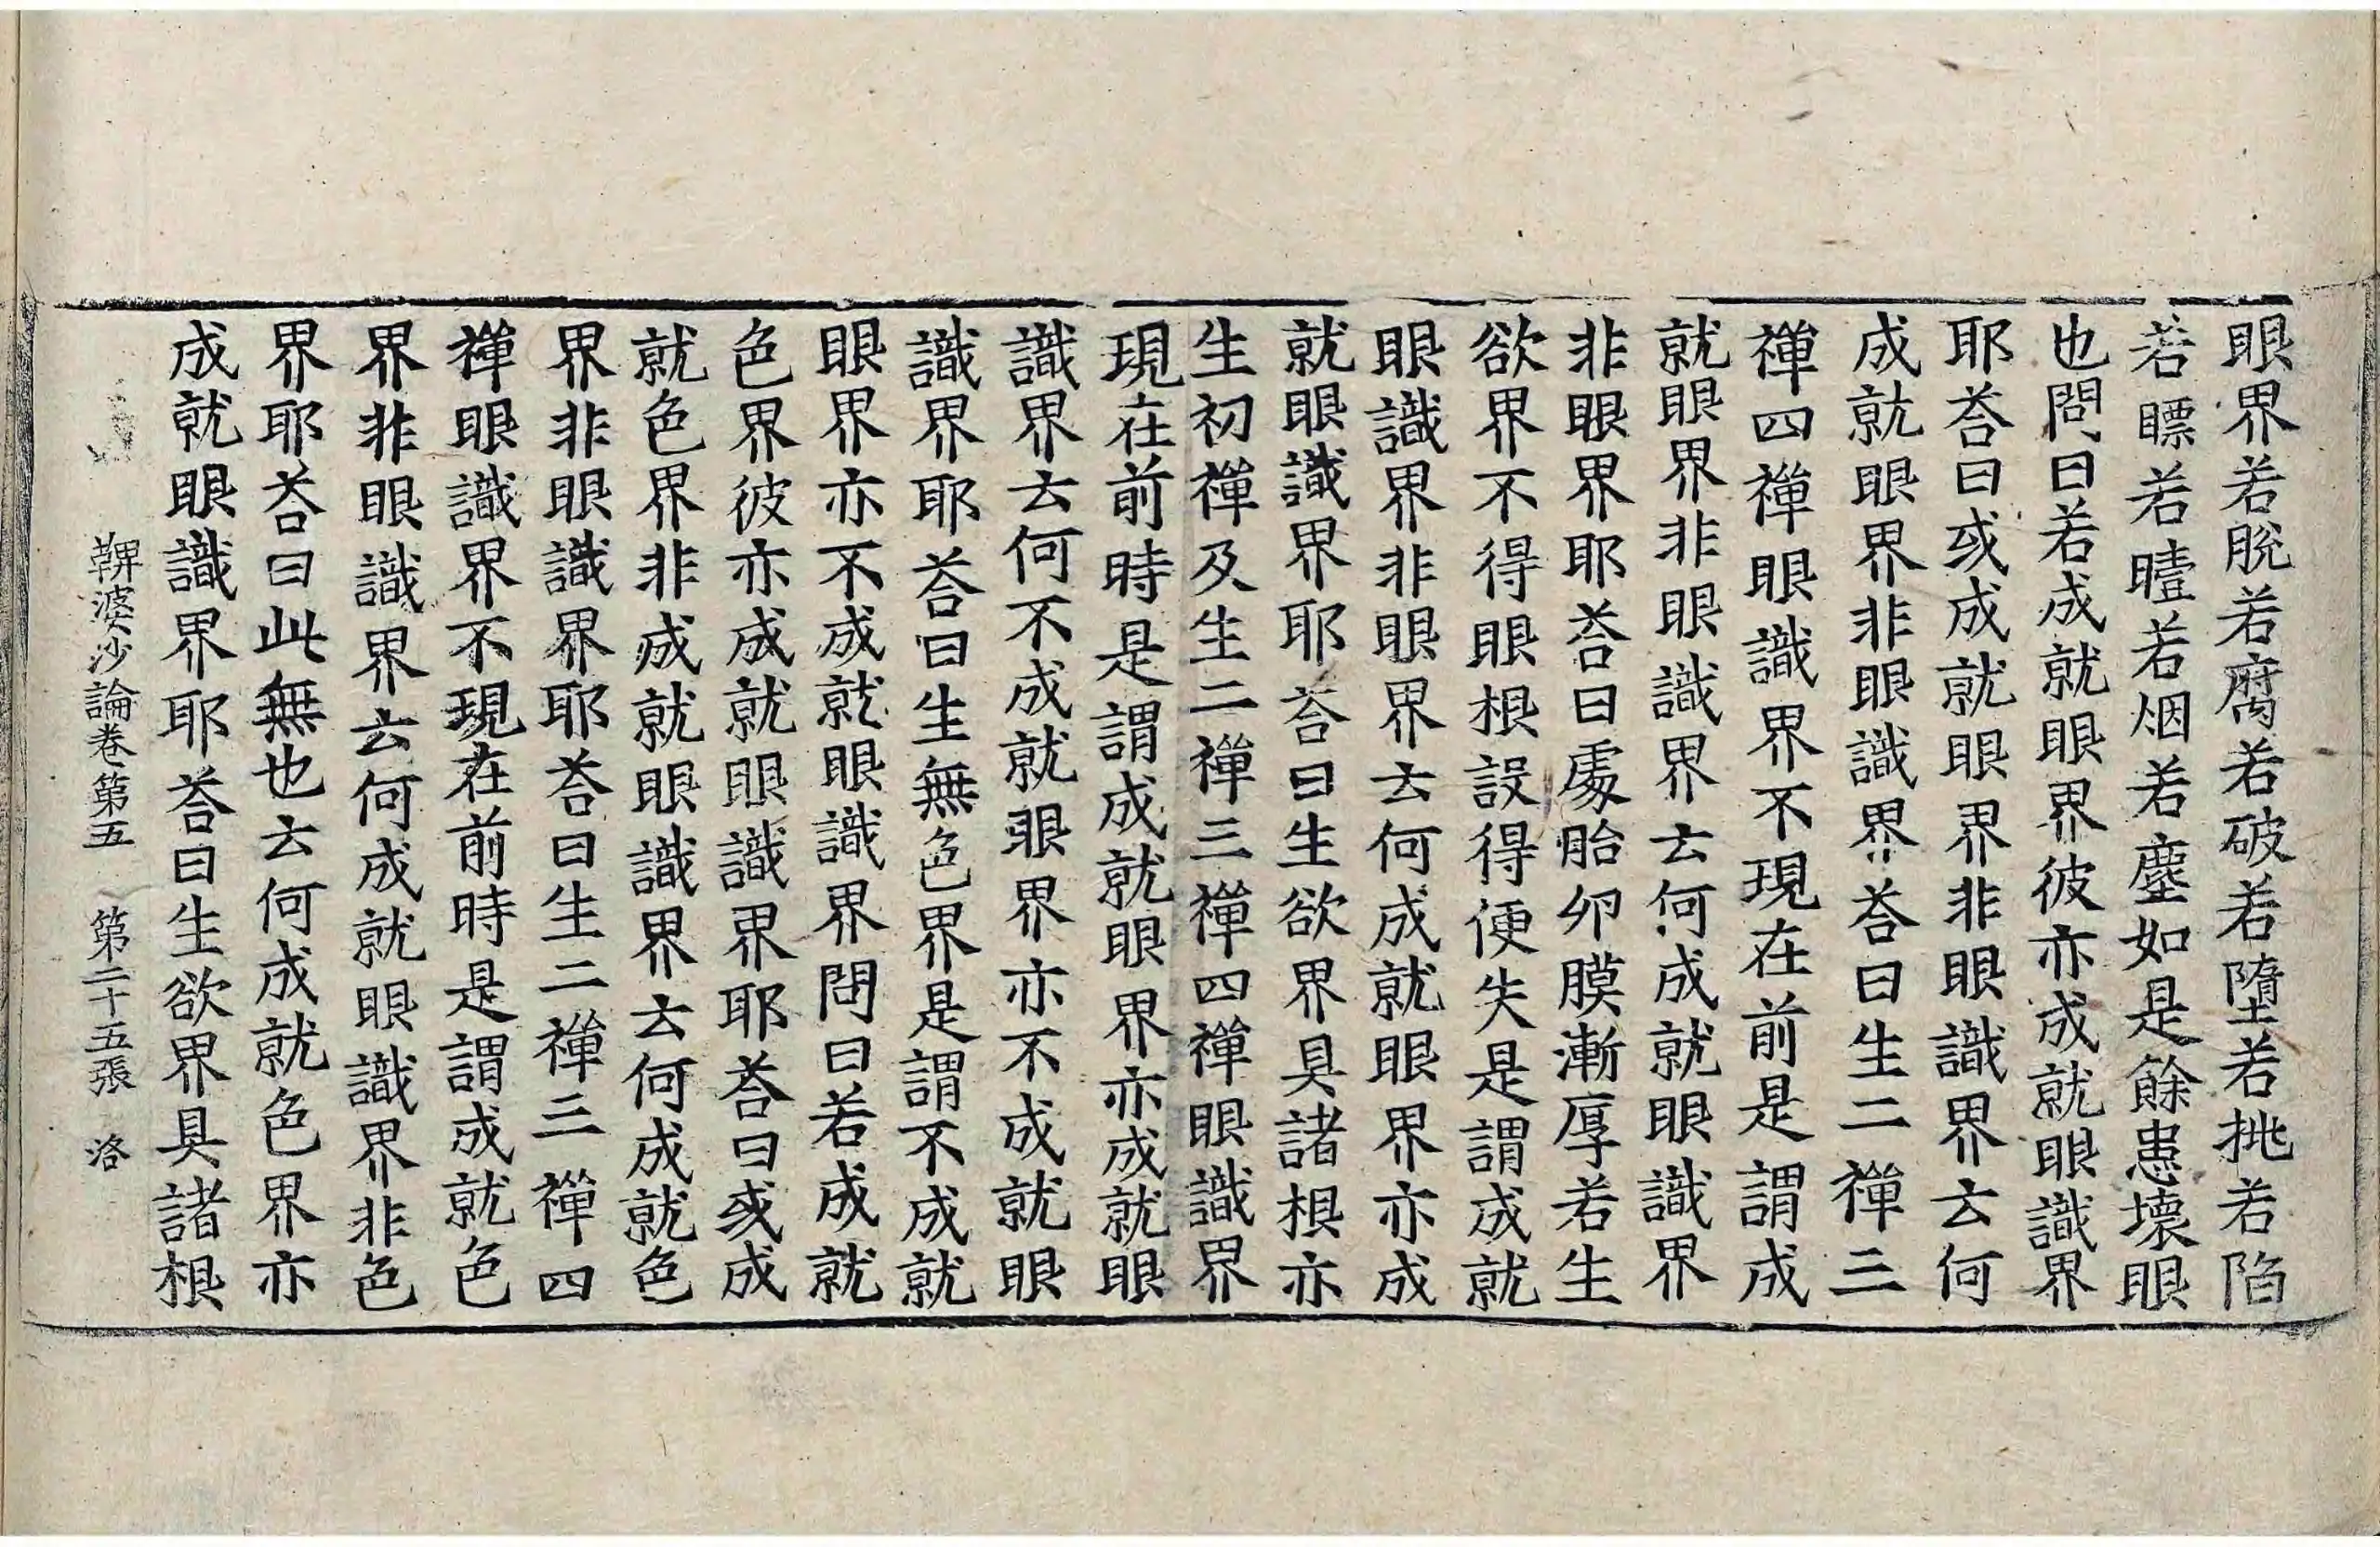 眼界若脫若腐若破若墮若挑若陷
若瞟若曀若烟若塵如是餘患壞眼
也問曰若成就眼界彼亦成就眼識界
耶荅曰或成就眼界非眼識界云何
成就眼界非眼識界荅曰生二禪三
禪四禪眼識界不現在前是謂成
就眼界非眼識界云何成就眼識界
非眼界耶荅曰處胎卵膜漸厚若生
欲界不得眼根設得便失是謂成就
眼識界非眼界云何成就眼界亦成
就眼識界耶荅曰生欲界具諸根亦
生初禪及生二禪三禪四禪眼識界
現在前時是謂成就眼界亦成就眼
識界云何不成就眼界亦不成就眼
識界耶荅曰生無色界是謂不成就
眼界亦不成就眼識界問曰若成就
色界彼亦成就眼識界耶荅曰或成
就色界非成就眼識界云何成就色
界非眼識界耶荅曰生二禪三禪四
禪眼識界不現在前時是謂成就色
界非眼識界云何成就眼識界非色
界耶荅曰此無也云何成就色界亦
成就眼識界耶荅曰生欲界具諸根
鞞婆沙論卷第五 第二十五張 洛